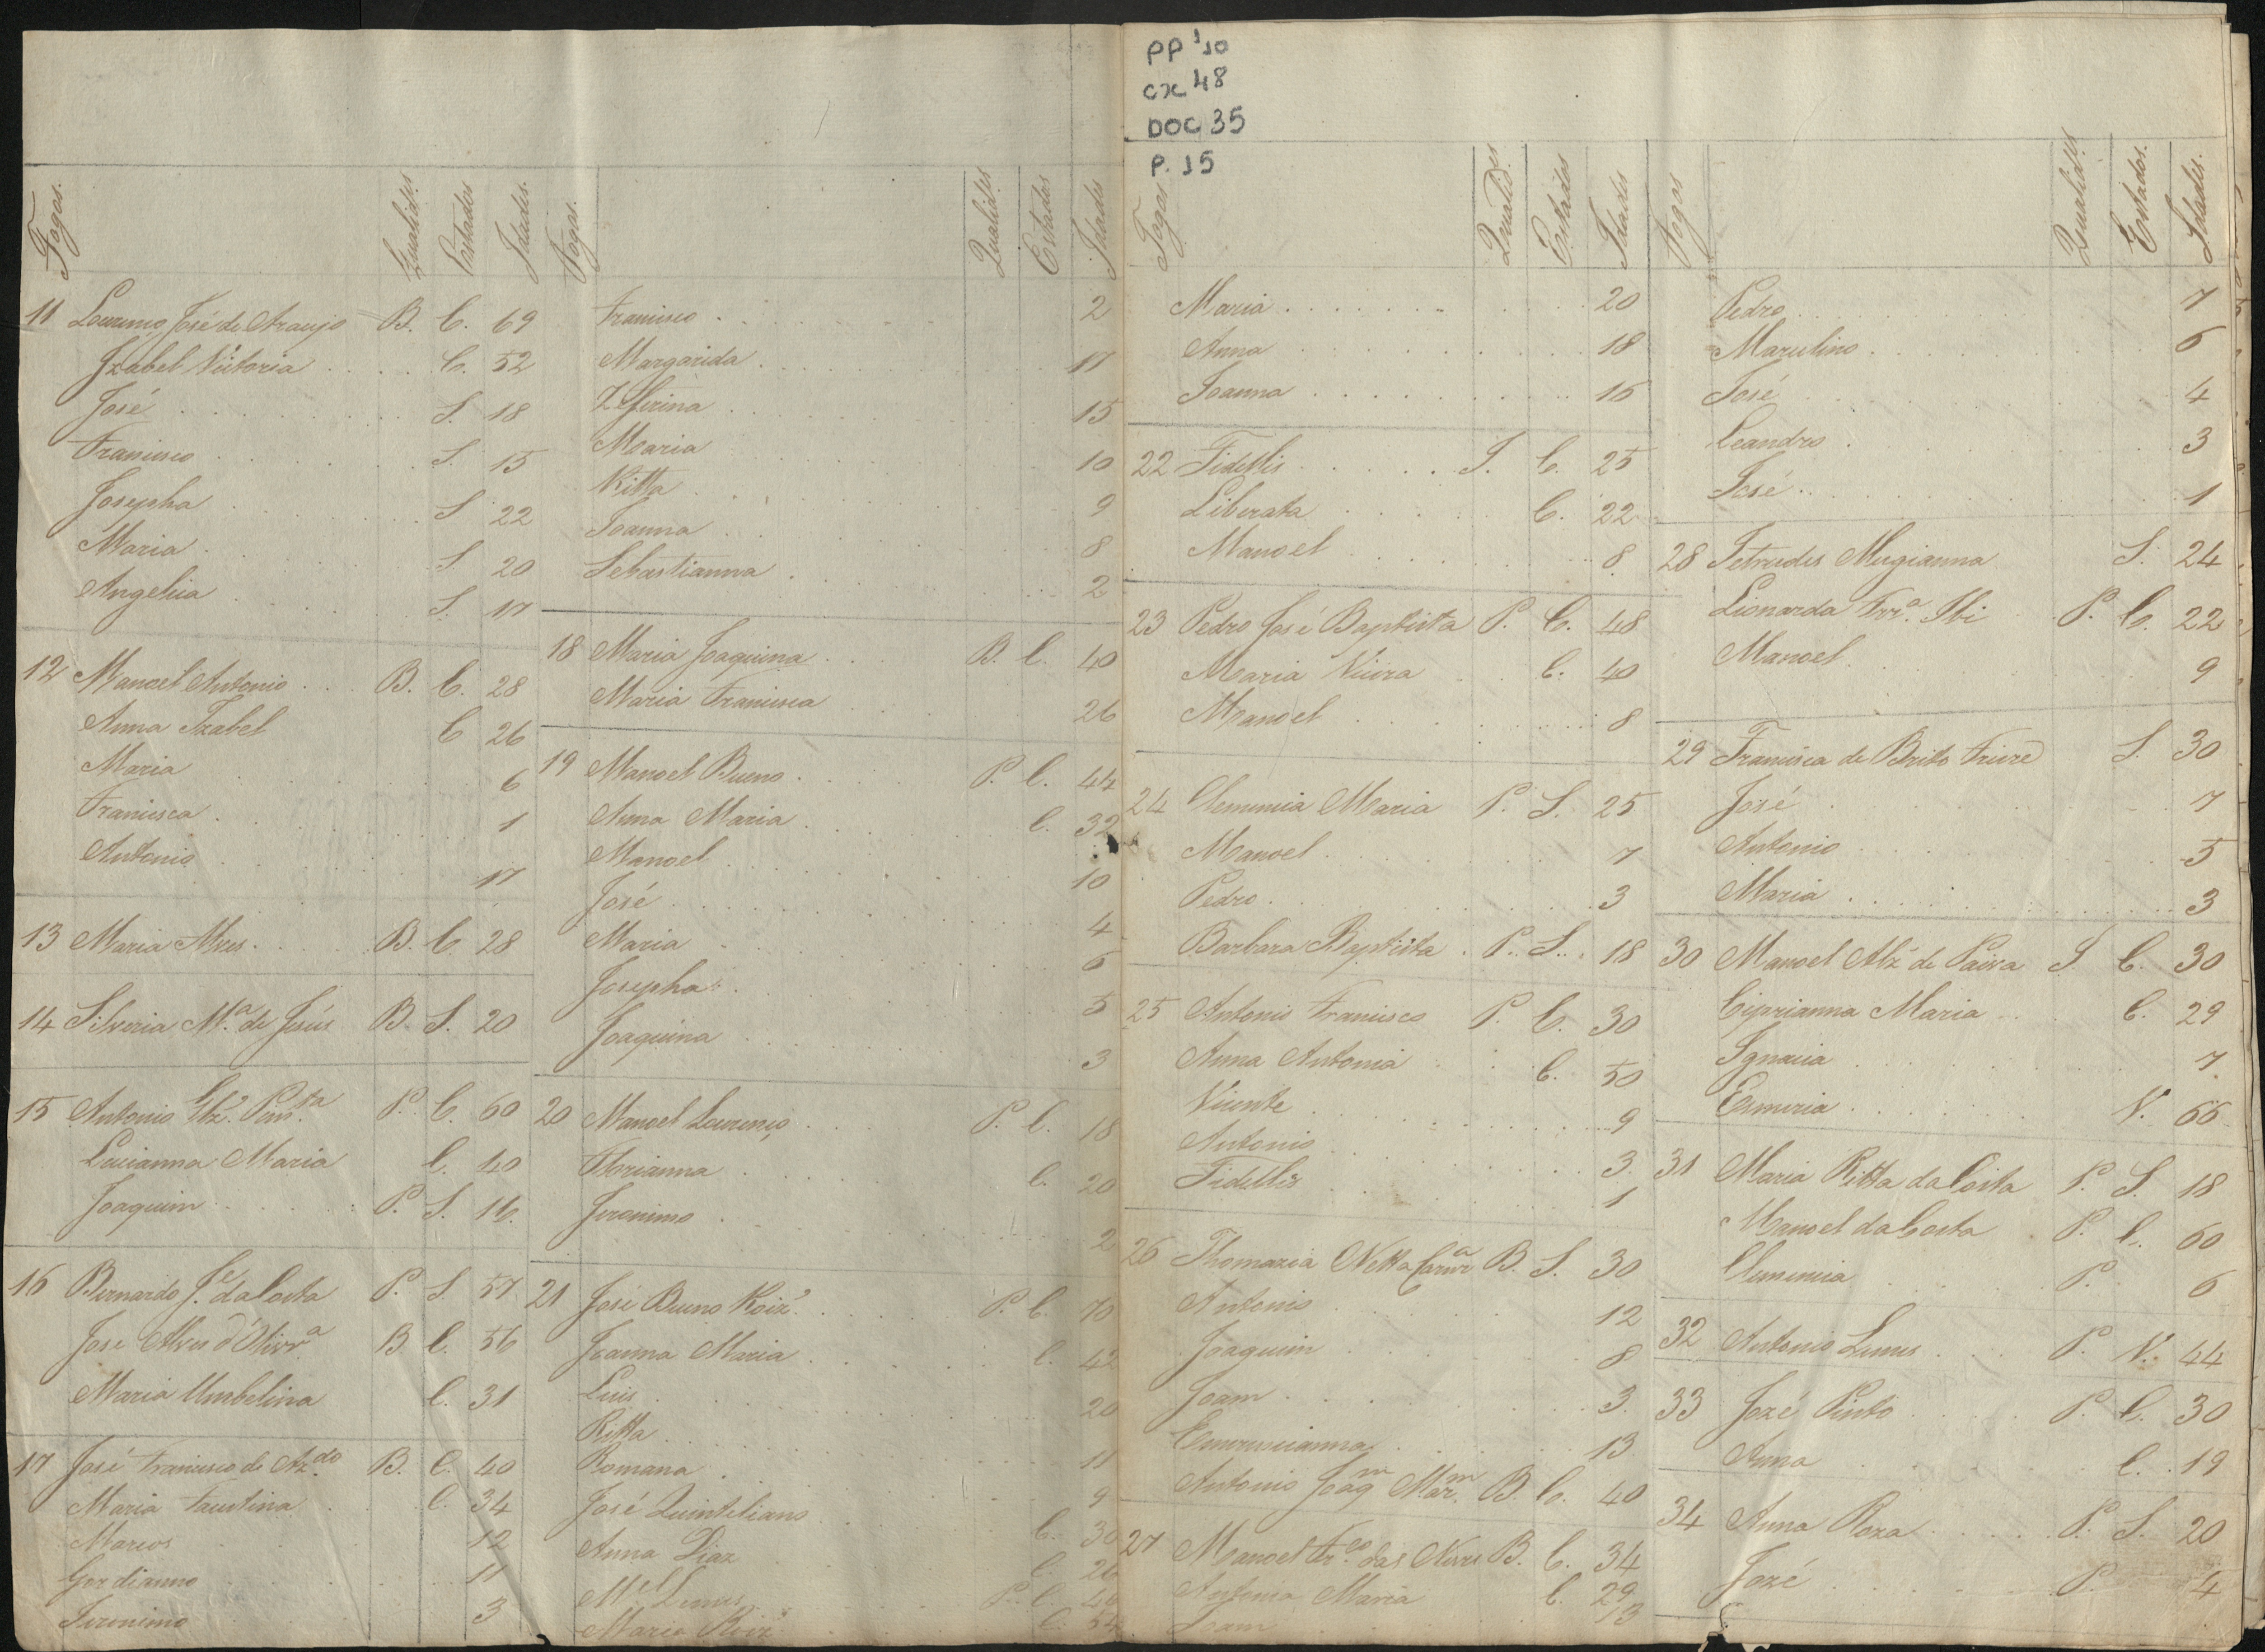 PP 1/10
cx 48
DOC 35
P. 15
Fogos. Qualides. Estados Idades.
11 Lourenço José de Araujo B. C. 69
Izabel Victoria C. 52
José S. 18
Francisco S. 15
Josepha S 22
Maria S 20
Angelica S. 17
12 Manoel Antonio B. C. 28
Anna Izabel C 26
Maria 6
Francisca 1
Antonio 17
13 Maria Alves B. C. 28
14 Silveria M.ª de Jesús B. S. 20
15 Antonio P. C. 60
Lucianna Maria C. 40
Joaquim P. S. 16.
16 Bernardo J.e da Costa P. S 57
Jose Alves d'Olivrª B. C. 56
Maria Umbelina C. 31
17 José Francisco de Az.do B. C. 40
Maria Faustina C. 34
Marcos 12
Gordianno 11
Jeronimo 3
Fogos. Qualides Estados Idades
Francisco 2
Margarida 17
Zefirina 15
Maria 10
Ritta 9
Joanna 8
Sebastianna 2
18 Maria Joaquina B. C. 40
Maria Francisca 26
19 Manoel Bueno P. C. 44
Anna Maria C. 32
Manoel 10
José 4
Maria 6
Josepha 5
Joaquina 3
20 Manoel Lourenço P. C. 18
Florianna C. 20
Jeronimo 2
21 José Bueno Roiz' P. C. 70
Joanna Maria C. 42
Luis 20
Ritta 11
Romana 9
José Quintiliano C. 30
Anna Diaz C. 26
M.el Lemes P. C. 46
Maria Roiz C. 54
Fogos Qualides Estados Idades
Maria 20
Anna 18
Joanna 16
22 Fidellis I. C. 25
Liberata C. 22
Manoel 8
23 Pedro José Baptista P. C. 48
Maria Vieira C. 40
Manoel 8
24 Clemencia Maria P. S. 25
Manoel 7
Pedro 3
Barbara Baptista P. S. 18
25 Antonio Francisco P. C. 30
Anna Antonia C. 50
Vicente 9
Antonio 3
Fidellis 1
26 Thomazia Netta B. S. 30
Antonio 12
Joaquim 8
Joam 3
Emerencianna 13
Antonio Joaqm Mar.m B. C. 40
27 Manoel Fr.co das Neves B. C. 34
Antonia Maria C. 29
Joam 13
Fogos Qualidades Estados. Idades.
Pedro 7
Marcelino 6
José 4
Leandro 3
José 1
28 S. 24
Lionarda Frr.ª P. C. 22
Manoel 9
29 Francisca de Brito Freire S. 30
José 7
Antonio 5
Maria 3
30 Manoel Alz' de Paiva I C. 30
Ciprianna Maria C. 29
Ignacia 7
V. 66
31 Maria Ritta da Costa P. S. 18
Manoel da Costa P. C. 60
Clemencia P. 6
32 Antonio Lemes P. V. 44
33 Jozé Pinto P. C. 30
Anna C. 19
34 Anna Roza P. S. 20
Jozé P. 4